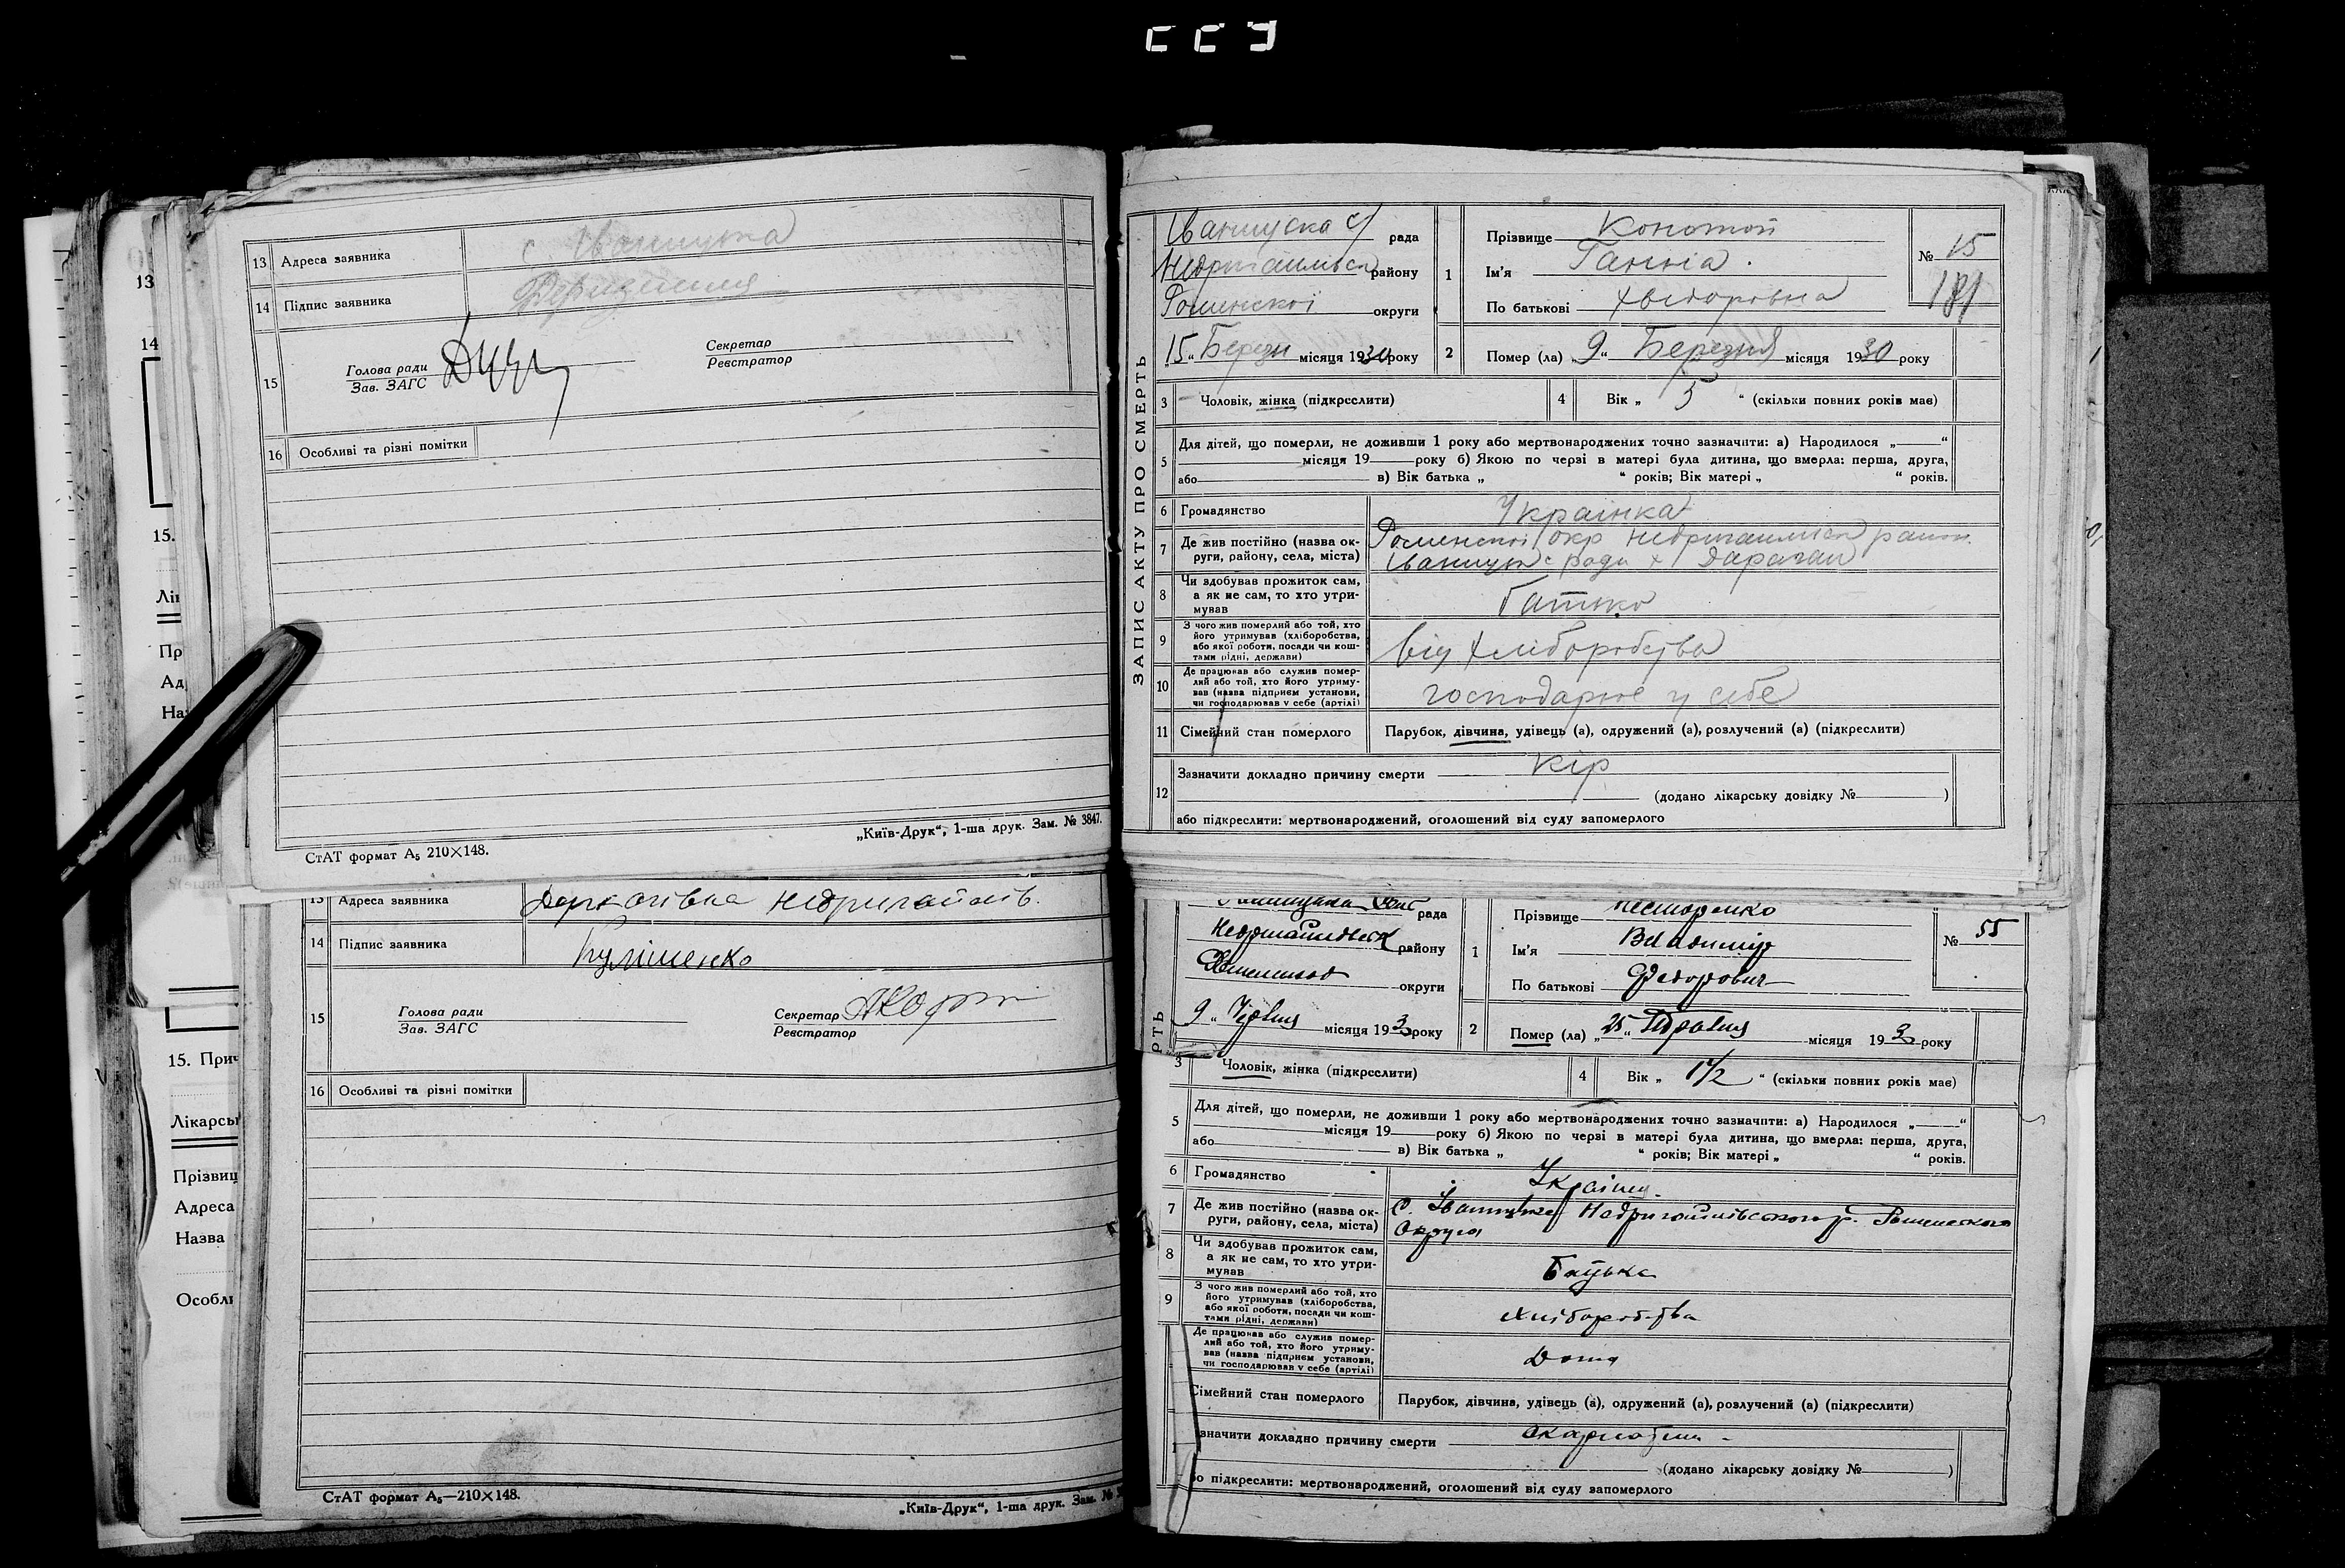 13 Адреса заявника с Іваницька
14 Підпис заявника
15 Голова ради
Зав. ЗАГС
Секретар
Реєстратор
16 Особливі та різні помітки
СтАТ формат А₅ 210×148.
„Київ-Друк“, 1-ша друк. Зам. № 3847.
13 Адреса заявника Недригайлів.
14 Підпис заявника Кулішенко
15 Голова ради
Зав. ЗАГС
Секретар
Реєстратор
16 Особливі та різні помітки
СтАТ формат А₅—210×148.
„Київ-Друк“, 1-ша друк. Зам. №
13
14
15.
Лі
Пр
Ад
На
15. Прич
Лікарсь
Прізвищ
Адреса
Назва
Особл
ЗАПИС АКТУ ПРО СМЕРТЬ
рада
району
Роменскої округи
15 „ Березн місяця 1930 року
1 Прізвище Конотоп
Ім'я Ганна
По батькові Хведоровна
№ 15
181
2 Помер (ла) „ 9 “ Березня місяця 1930 року
3 Чоловік, жінка (підкреслити)
4 Вік „ 5 “ (скільки повних років має)
5 Для дітей, що померли, не доживши 1 року або мертвонароджених точно зазначити: а) Народилося „ “
місяця 19 року б) Якою по черзі в матері була дитина, що вмерла: перша, друга,
або в) Вік батька „ “ років; Вік матері „ “ років.
6 Громадянство Українка
7 Де жив постійно (назва округи, району, села, міста) Роменскої окр район.
ради х
8 Чи здобував прожиток сам,
а як не сам, то хто утри-
мував Батько
9 З чого жив померлий або той, хто
його утримував (хліборобства,
або якої роботи, посади чи кош-
тами рідні, держави) від хліборобства
10 Де працював або служив помер-
лий або той, хто його утриму-
вав (назва підприєм установи,
чи господарював у себе (артілі) господарює у себе
11 Сімейний стан померлого Парубок, дівчина, удівець (а), одружений (а), розлучений (а) (підкреслити)
12 Зазначити докладно причину смерти Кір
(додано лікарську довідку № )
або підкреслити: мертвонароджений, оголошений від суду запомерлого
РТЬ
рада
району
округи
9 „ Червня місяця 193 року
1 Прізвище Нестеренко
Ім'я Владимир
По батькові Федорович
№ 55
2 Помер (ла) „ 25 “ Травня місяця 193 року
3 Чоловік, жінка (підкреслити)
4 Вік „ 1 1/2 “ (скільки повних років має)
5 Для дітей, що померли, не доживши 1 року або мертвонароджених точно зазначити: а) Народилося „ “
місяця 19 року б) Якою по черзі в матері була дитина, що вмерла: перша, друга,
або в) Вік батька „ “ років; Вік матері „ “ років.
6 Громадянство
7 Де жив постійно (назва ок-
руги, району, села, міста) с.
Округа
8 Чи здобував прожиток сам,
а як не сам, то хто утри-
мував Батька
9 З чого жив померлий або той, хто
його утримував (хліборобства,
або якої роботи, посади чи кош-
тами рідні, держави) хліборобства
Де працював або служив помер-
лий або той, хто його утриму-
вав (назва підприєм установи,
чи господарював у себе (артілі) Дома
Сімейний стан померлого Парубок, дівчина, удівець (а), одружений (а), розлучений (а) (підкреслити)
значити докладно причину смерти
(додано лікарську довідку № )
бо підкреслити: мертвонароджений, оголошений від суду запомерлого